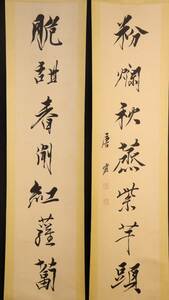 粉爛秋蒸紫芋頭
唐寅
脆甜春澗紅蘿蔔